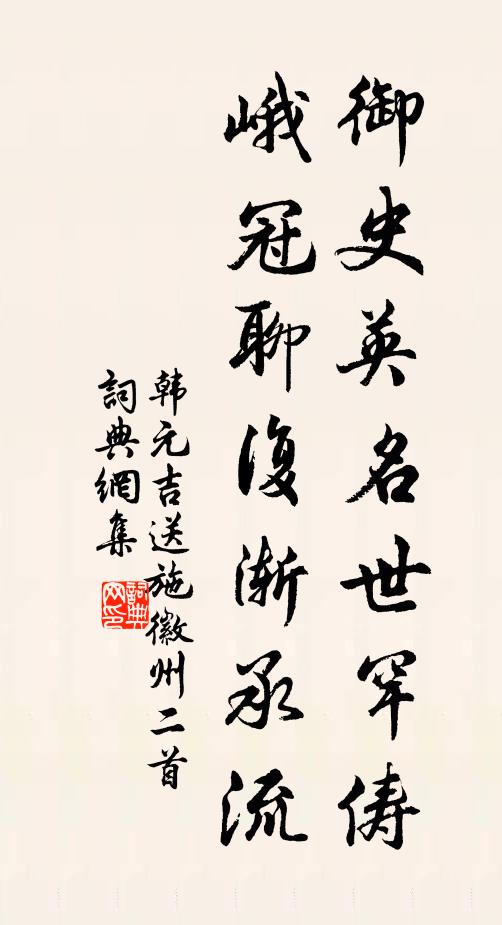 御史英名世罕俦
峨冠聊復漸承流
韩元吉送施徽州二首
詞典網集
詞典网印